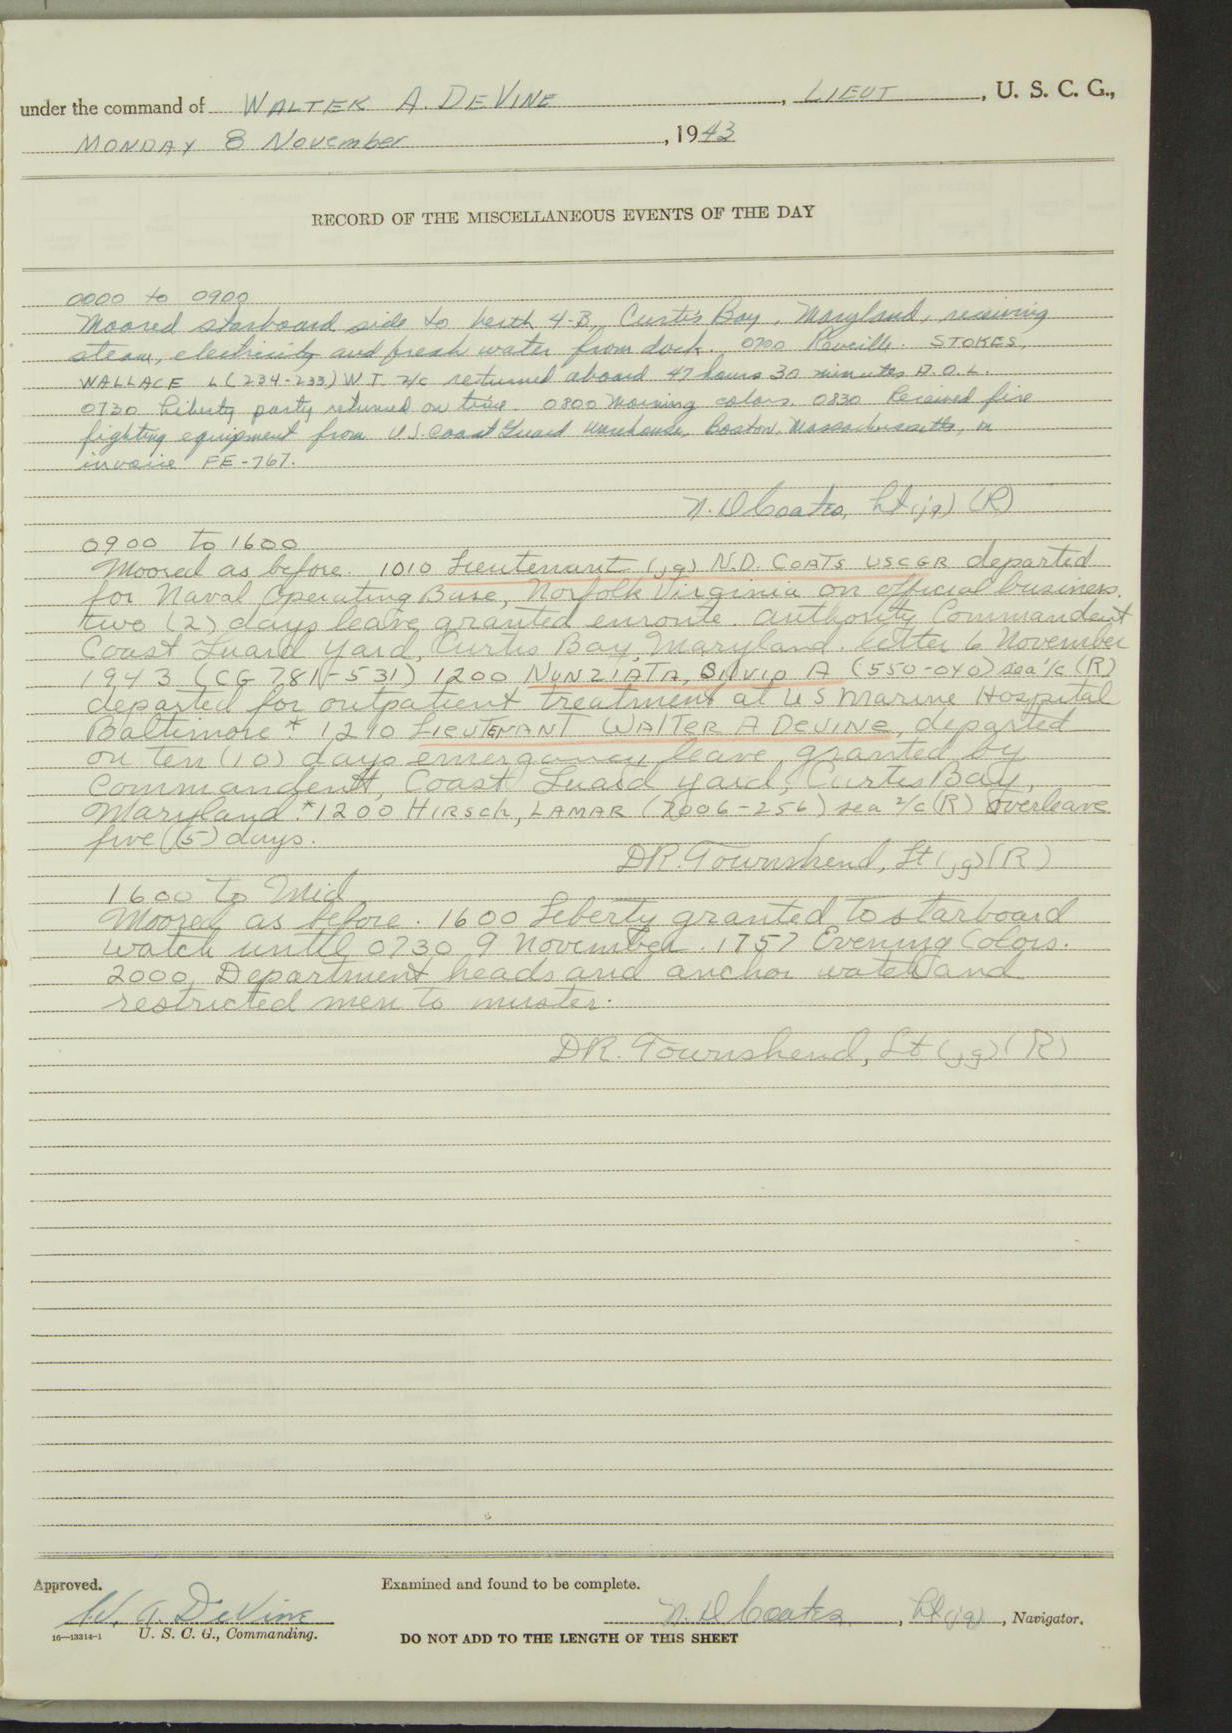 under the command of WALTER A. DEVINE, LIEUT, U. S. C. G.,
MONDAY 8 November, 1943
RECORD OF THE MISCELLANEOUS EVENTS OF THE DAY
0000 to 0900
Moored starboard side to berth 4-B, Curtis Bay, Maryland, receiving
steam, electricity and fresh water from dock. 0700 Reveille. STOKES,
WALLACE L (234-233) W.T. 2/c returned aboard 47 hours 30 minutes A.O.L.
0730 Liberty party returned on time. 0800 Morning colors. 0830 Received fire
fighting equipment from U.S. Coast Guard Warehouse, Boston, Massachusetts, on
invoice FE-767.
N. D Coats, Lt (jg) (R)
0900 to 1600
Moored as before. 1010 Lieutenant (jg) N.D. COATS USCGR departed
for Naval Operating Base, Norfolk Virginia on official business.
two (2) days leave granted enroute. Authority Commandant
Coast Guard Yard, Curtis Bay, Maryland. letter 6 November
1943 (CG 781-531) 1200 NUNZIATA, SILVIO A (550-040) sea 1/c (R)
departed for outpatient treatment at US Marine Hospital
Baltimore * 1210 LIEUTENANT WALTER A DEVINE, departed
on ten (10) days emergency leave, granted by
Commandent, Coast Guard Yard, Curtis Bay,
Maryland. *1200 HIRSCH, LAMAR (7006-256) sea 2/c (R) Overleave
five (5) days.
DR. Townshend, Lt (jg) (R)
1600 to Mid
Moored as before. 1600 Liberty granted to starboard
watch until 0730 9 November. 1757 Evening Colors.
2000, Department heads and anchor watch and
restricted men to muster.
DR. Townshend, Lt (jg) (R)
Approved.
Examined and found to be complete.
W. A. DeVine
N. D Coats, Lt (jg), Navigator.
16—13314-1 U. S. C. G., Commanding.
DO NOT ADD TO THE LENGTH OF THIS SHEET